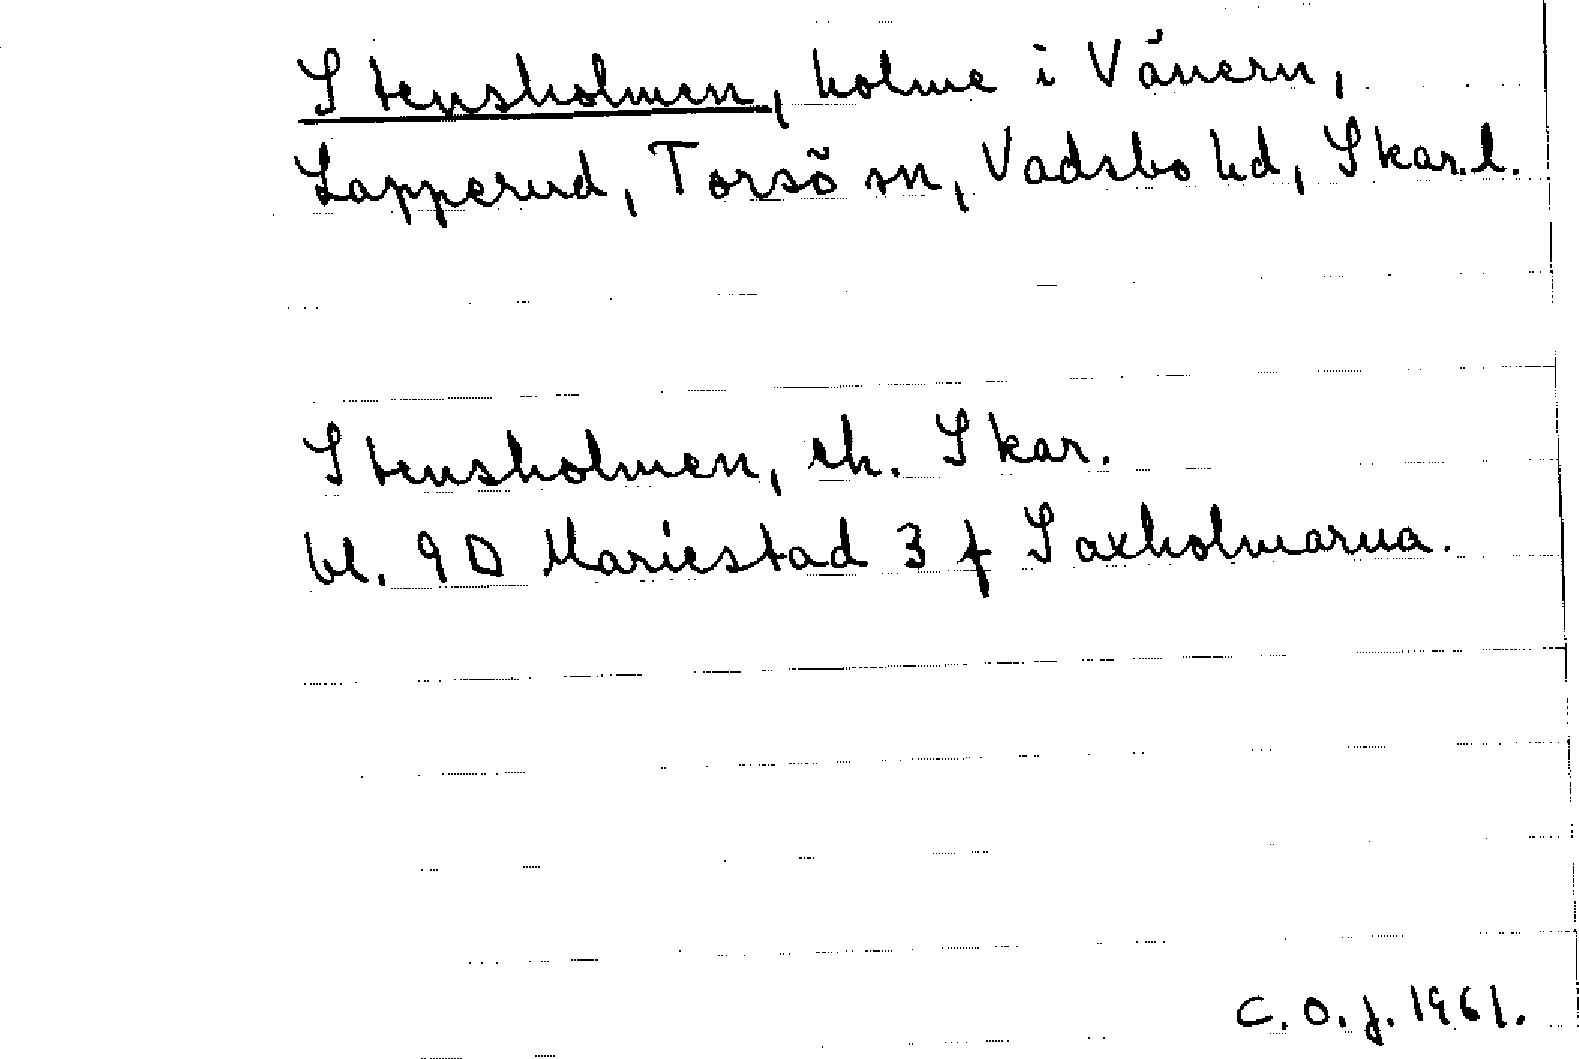 Stensholmen, holme i Vänern,
Lapperud, Torsö sn, Vadsbo hd, Skar.l.
Stensholmen, ek. Skar.
bl. 9D Mariestad 3 f Saxholmarna.
C.O.J. 1961.